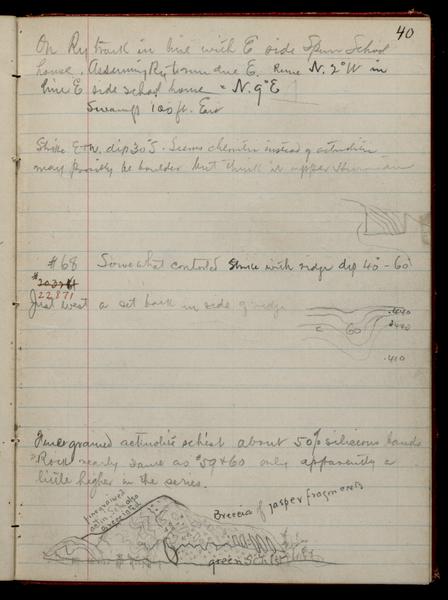 40
On Ry track in line with E side Spurr School
house. Assuming Ry to run due E. Runs N. 2° W in
line E side school house = N. 9° E
Swamp 100 ft. East
Strike E+W. dip 30° S. Seems chlorite instead of actinolite
may possibly be boulder but think it upper Huronian
#68 Somewhat contorted Strike with ridge dip 40° - 60°
22871
Just west a set back in side of ridge
60
Finer grained actinolite schist about 50% silicious bands
Rock nearly same as #59 + 60 only apparently a
little higher in the series.
finegrained
associated
Breccia of jasper fragments
green Schist